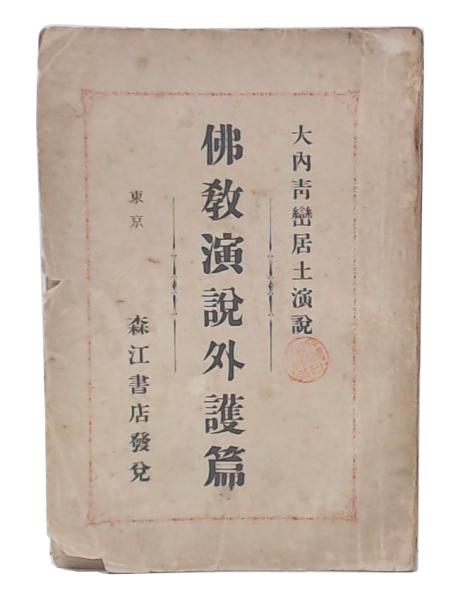 大內靑巒居士演說
佛敎演說外護篇
東京
森江書店發兌